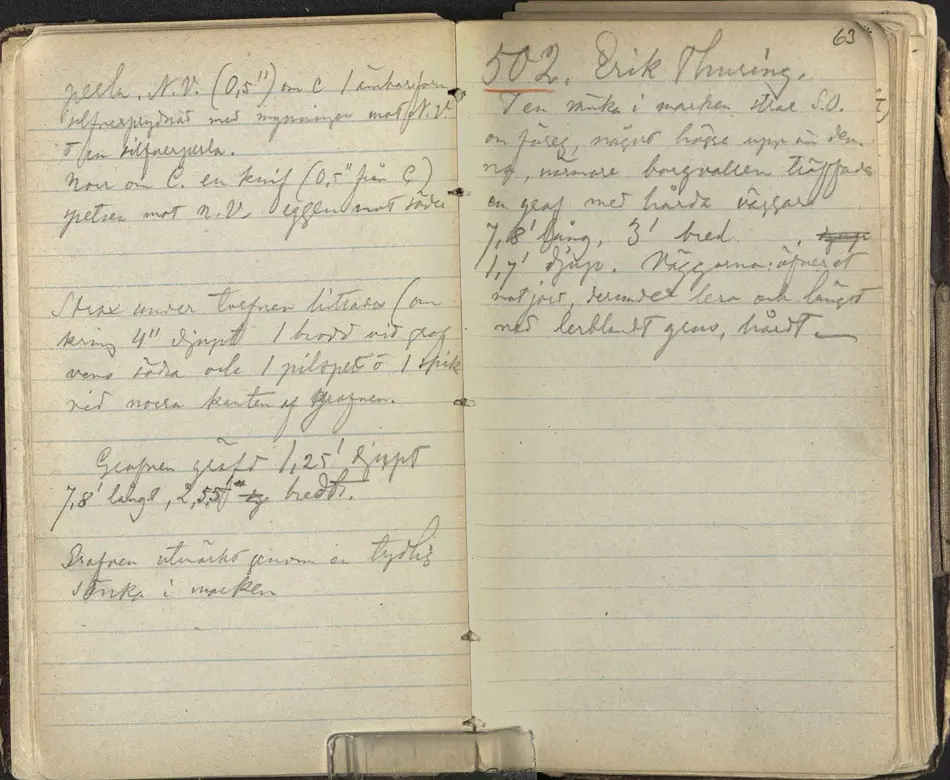 perla. N.V. (0,5") om C 1 ämbarform
silfverprydnad med mynningen mot N.V.
o en silfverperla.
Norr om C. en knif (0,5" från C)
spetsen mot N.V. eggen mot söder
Strax under torfven hittades (om
kring 4" djupt 1 brodd vid graf
vens södra och 1 pilspets o 1 spik
vid norra kanten af grafven.
Grafven gräfd 1,25' djupt
7,8' långt, 2,55' bredt.
Grafven utmärkt genom en tydlig
sänka i marken
63
502. Erik Thuring.
I en sänka i marken strax S.O.
om föreg, något högre upp än den
na, närmare borgvallen träffades
en graf med hårda väggar
7,8' lång, 3' bred
1,7' djup. Väggarna: öfverst
matjord, derunder lera och längst
ned lerblandt grus, hårdt.